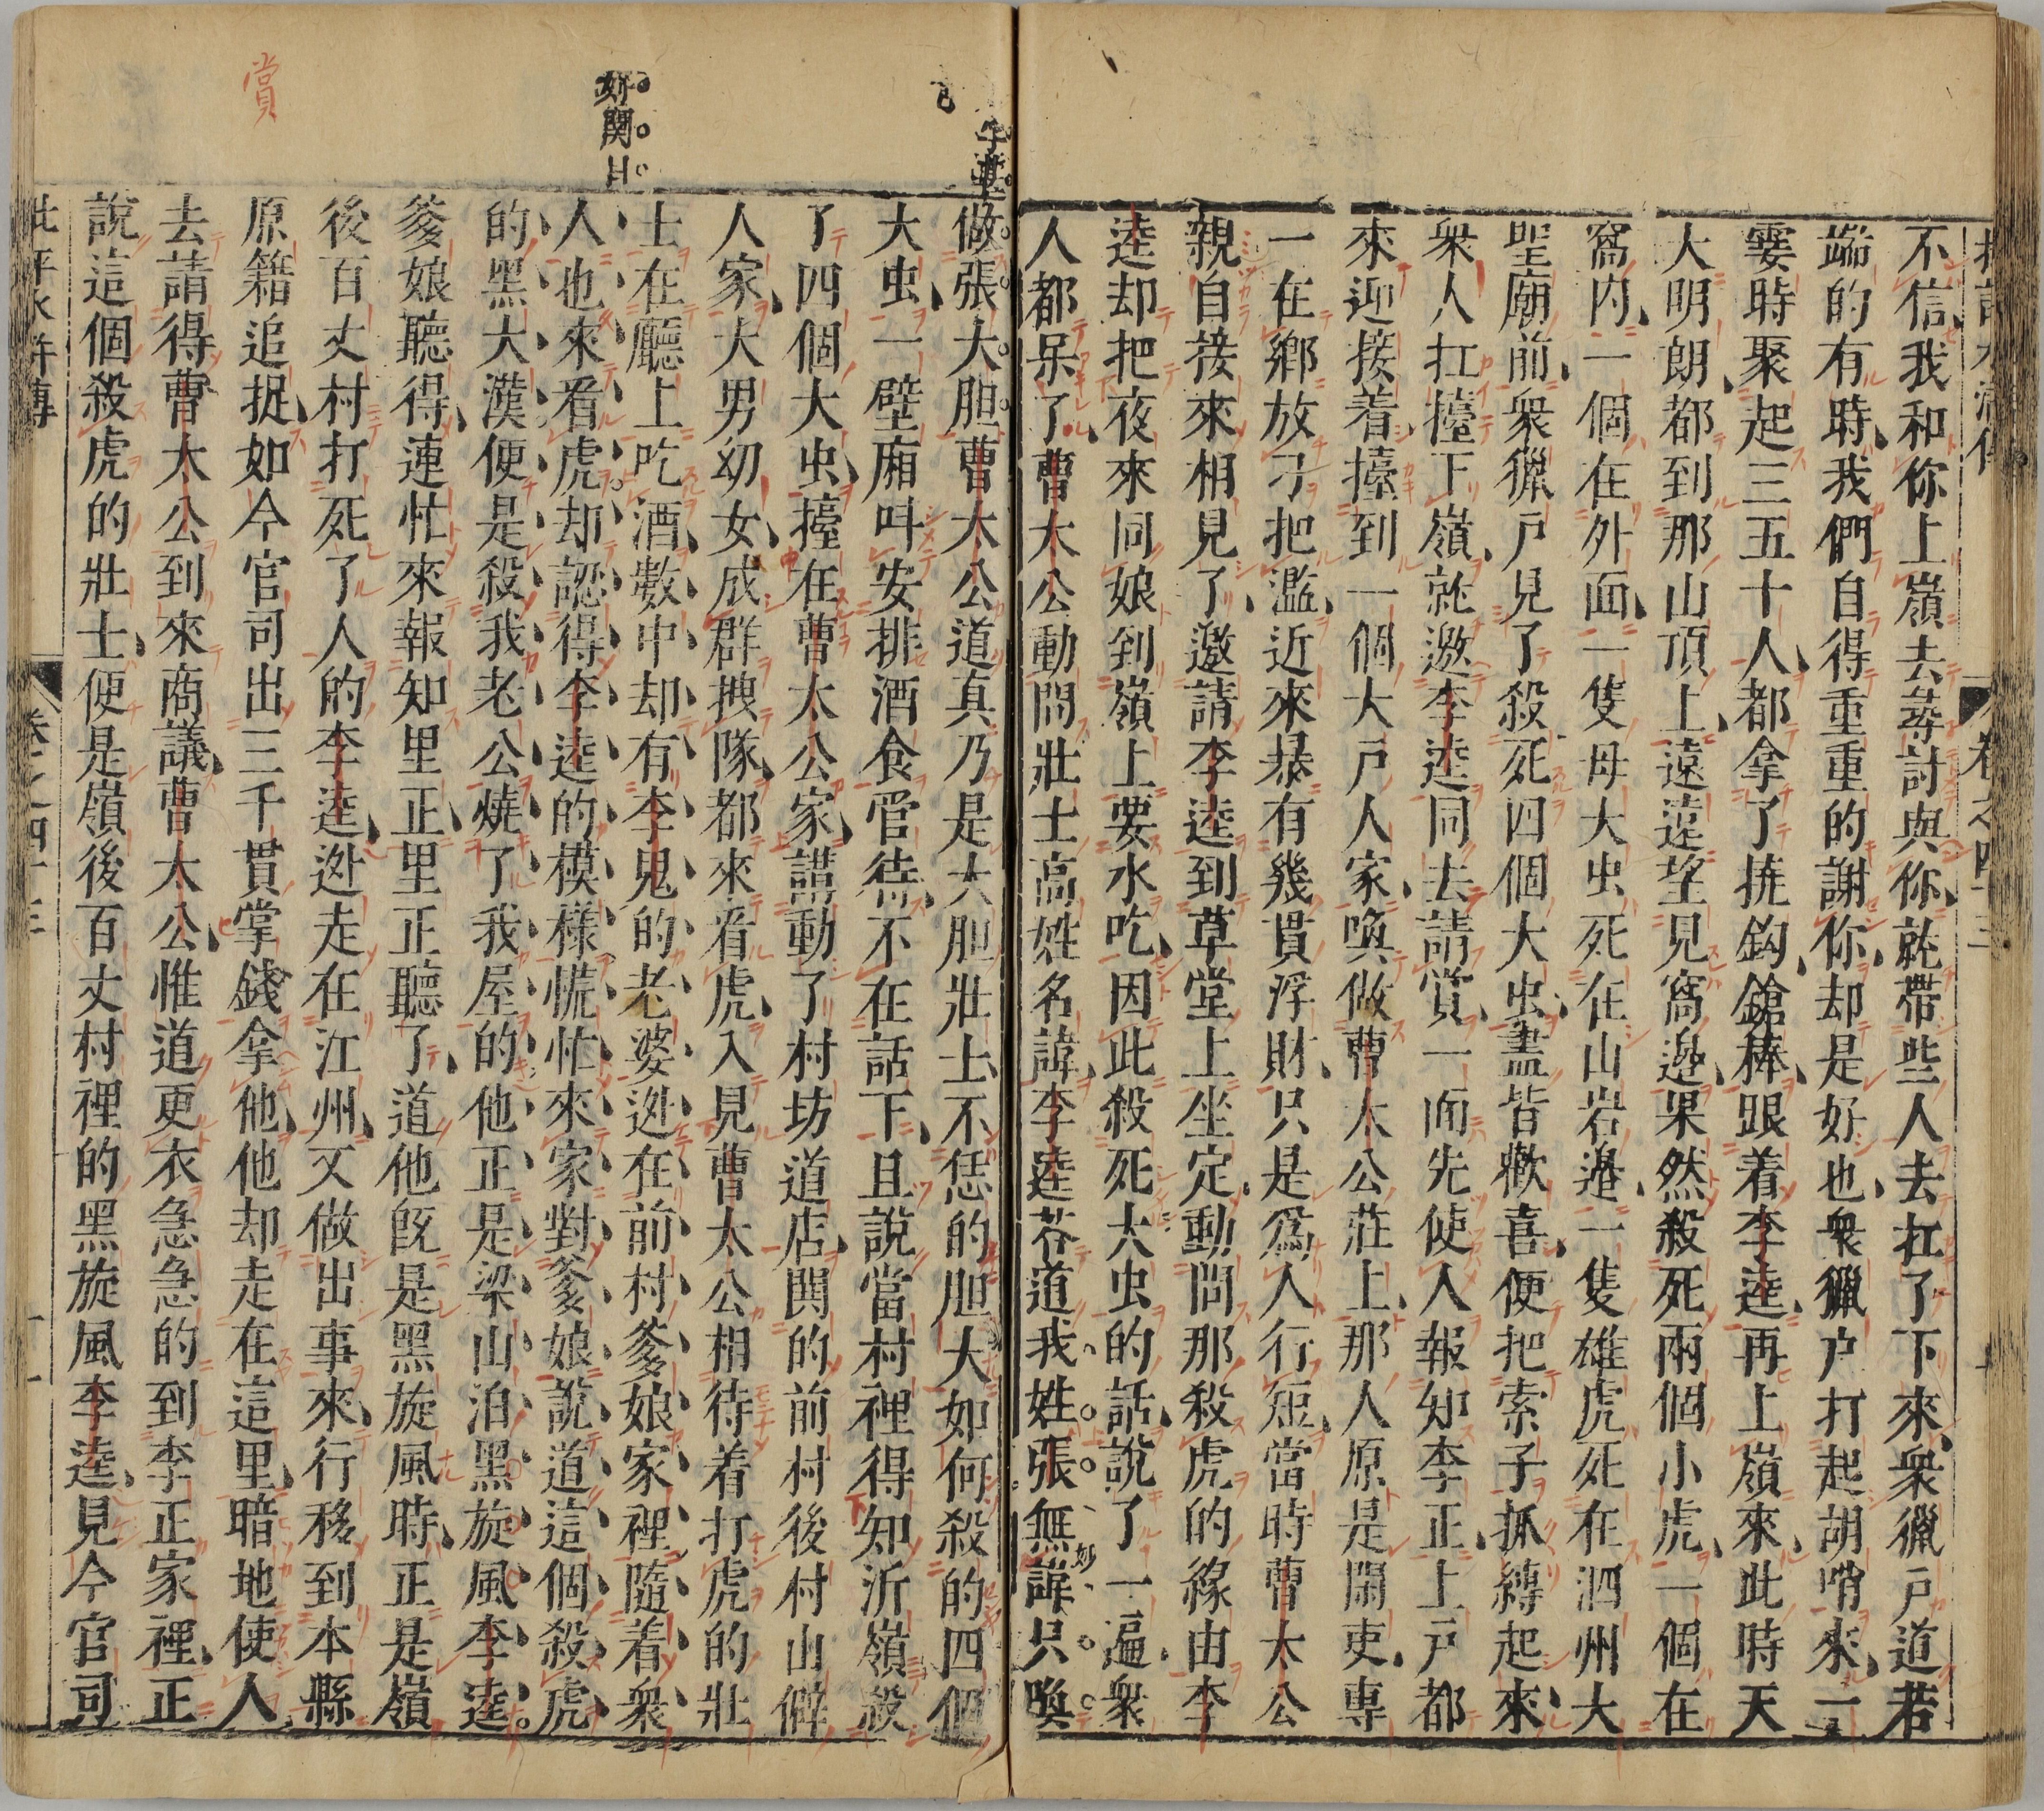 卷之四十三
不信我和你上嶺去尋討與你就帶些人去扛了下來衆獵戶道若
端的有時我們自得重重的謝你却是好也衆獵户打起胡哨來一
霎時聚起三五十人都拿了撓鈎鎗棒跟着李逵再上嶺來此時天
大明朗都到那山頂上遠遠望見窩邊果然殺死兩個小虎一個在
窩内一個在外面一隻母大虫死在山岩邊一隻雄虎死在泗州大
聖廟前衆獵戸見了殺死四個大虫盡皆歡喜便把索子抓縛起來
衆人扛擡下嶺就邀李逵同去請賞一面先使人報知李正上戸都
來迎接着擡到一個大戸人家喚做曹太公莊上那人原是閑吏專
一在鄉放刁把濫近來暴有幾貫浮財只是爲人行短當時曹太公
親自接來相見了邀請李逵到草堂上坐定動問那殺虎的緣由李
逵却把夜來同娘到嶺上要水吃因此殺死大虫的話說了一遍衆
人都呆了曹太公動問壯士高姓名諱李逵荅道我姓張無諱只喚
妙
做張大胆曹太公道真乃是大胆壯士不恁的胆大如何殺的四個
大虫一壁廂呌安排酒食管待不在話下且說當村裡得知沂嶺殺
了四個大虫擡在曹太公家講動了村坊道店閧的前村後村山僻
人家大男幼女成群拽隊都來看虎入見曹太公相待着打虎的壯
士在廳上吃酒數中却有李鬼的老婆逃在前村爹娘家裡隨着衆
人也來看虎却認得李逵的模樣慌忙來家對爹娘說道這個殺虎
的黑大漢便是殺我老公燒了我屋的他正是梁山泊黑旋風李逵
爹娘聽得連忙來報知里正里正聽了道他既是黑旋風時正是嶺
後百丈村打死了人的李逵逃走在江州又做出事來行移到本縣
原籍追捉如今官司出三千貫賞錢拿他他却走在這里暗地使人
去請得曹太公到來商議曹太公惟道更衣急急的到李正家裡正
說這個殺虎的壯士便是嶺後百丈村裡的黑旋風李逵見今官司
好関目
賞